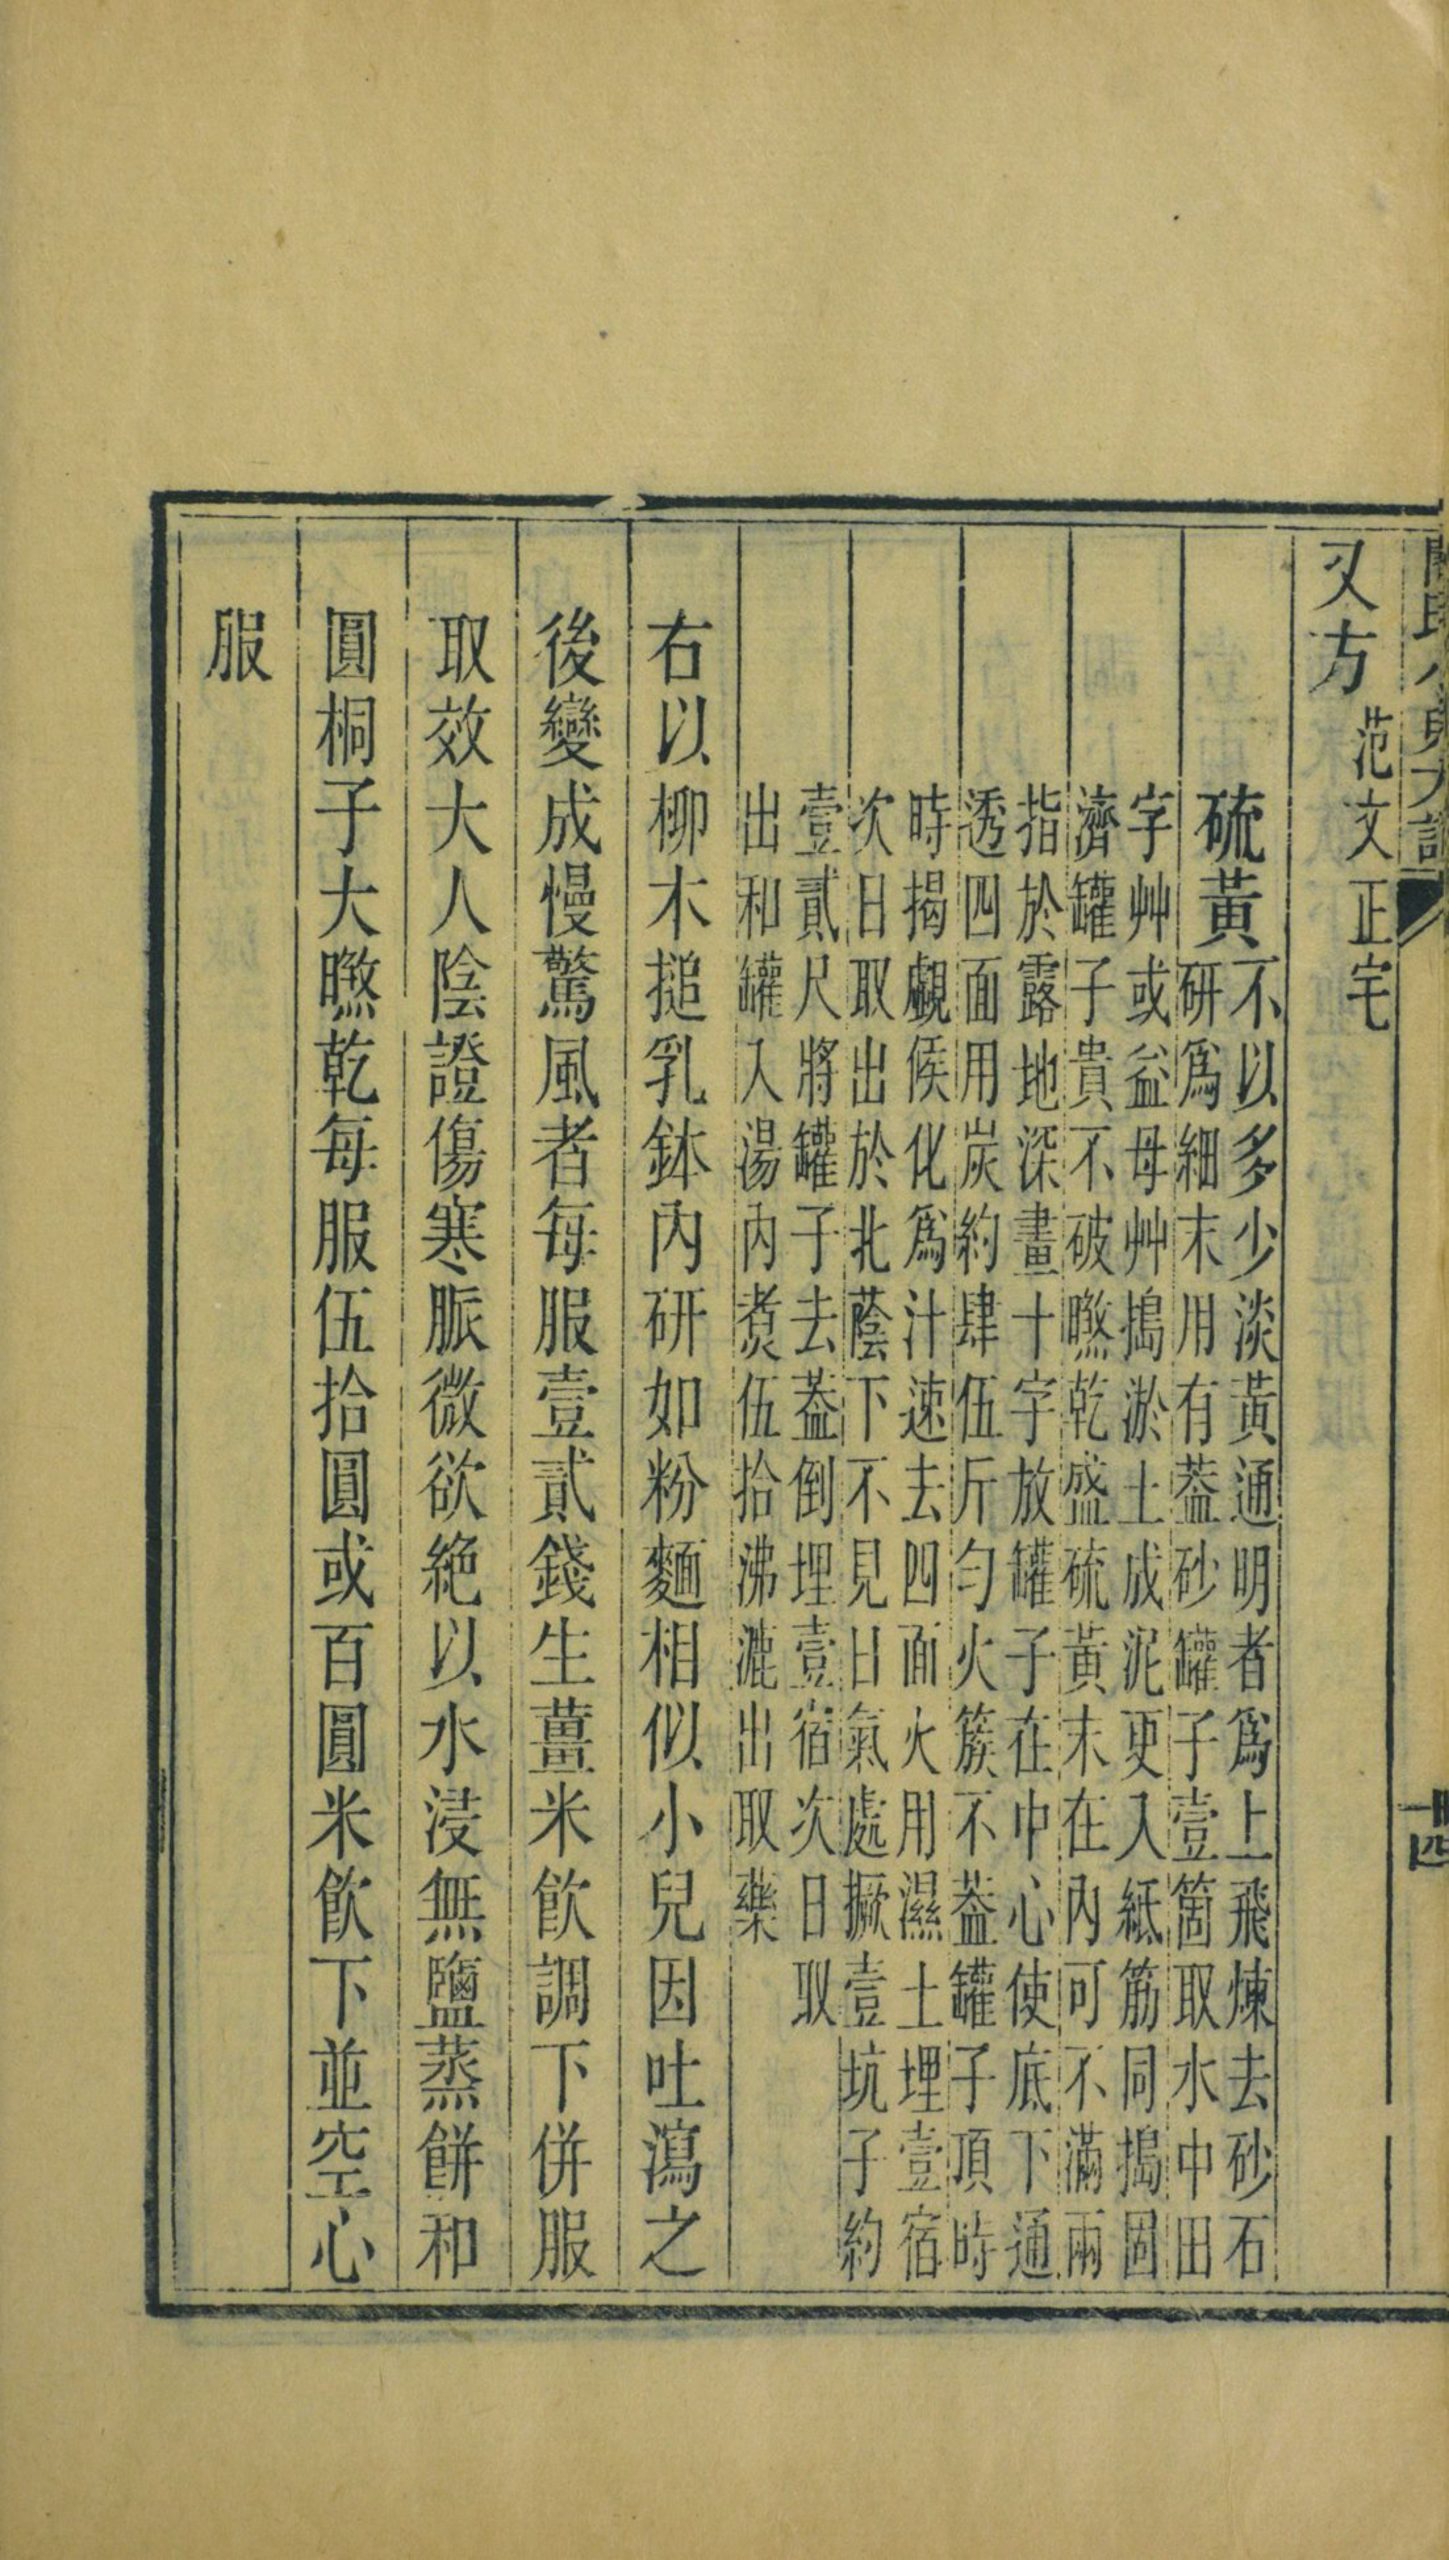 又方范文正宅
硫黃不以多少淡黃通明者爲上飛煉去砂石
研爲細末用有葢砂罐子壹箇取水中田
字艸或益母艸搗淤土成泥更入紙筋同搗固
濟罐子貴不破㬠乾盛硫黃末在內可不滿兩
指於露地深畫十字放罐子在中心使底下通
透四面用炭約肆伍斤匀火簇不葢罐子頂時
時揭覷候化爲汁速去四面火用濕土埋壹宿
次日取出於北蔭下不見日氣處撅壹坑子約
壹貳尺將罐子去葢倒埋壹宿次日取
出和罐入湯內煑伍拾沸漉出取藥
右以柳木搥乳鉢內研如粉麵相似小兒因吐瀉之
後變成慢驚風者每服壹貳錢生薑米飮調下併服
取效大人陰證傷寒脈微欲絶以水浸無鹽蒸餠和
圓桐子大㬠乾每服伍拾圓或百圓米飮下並空心
服